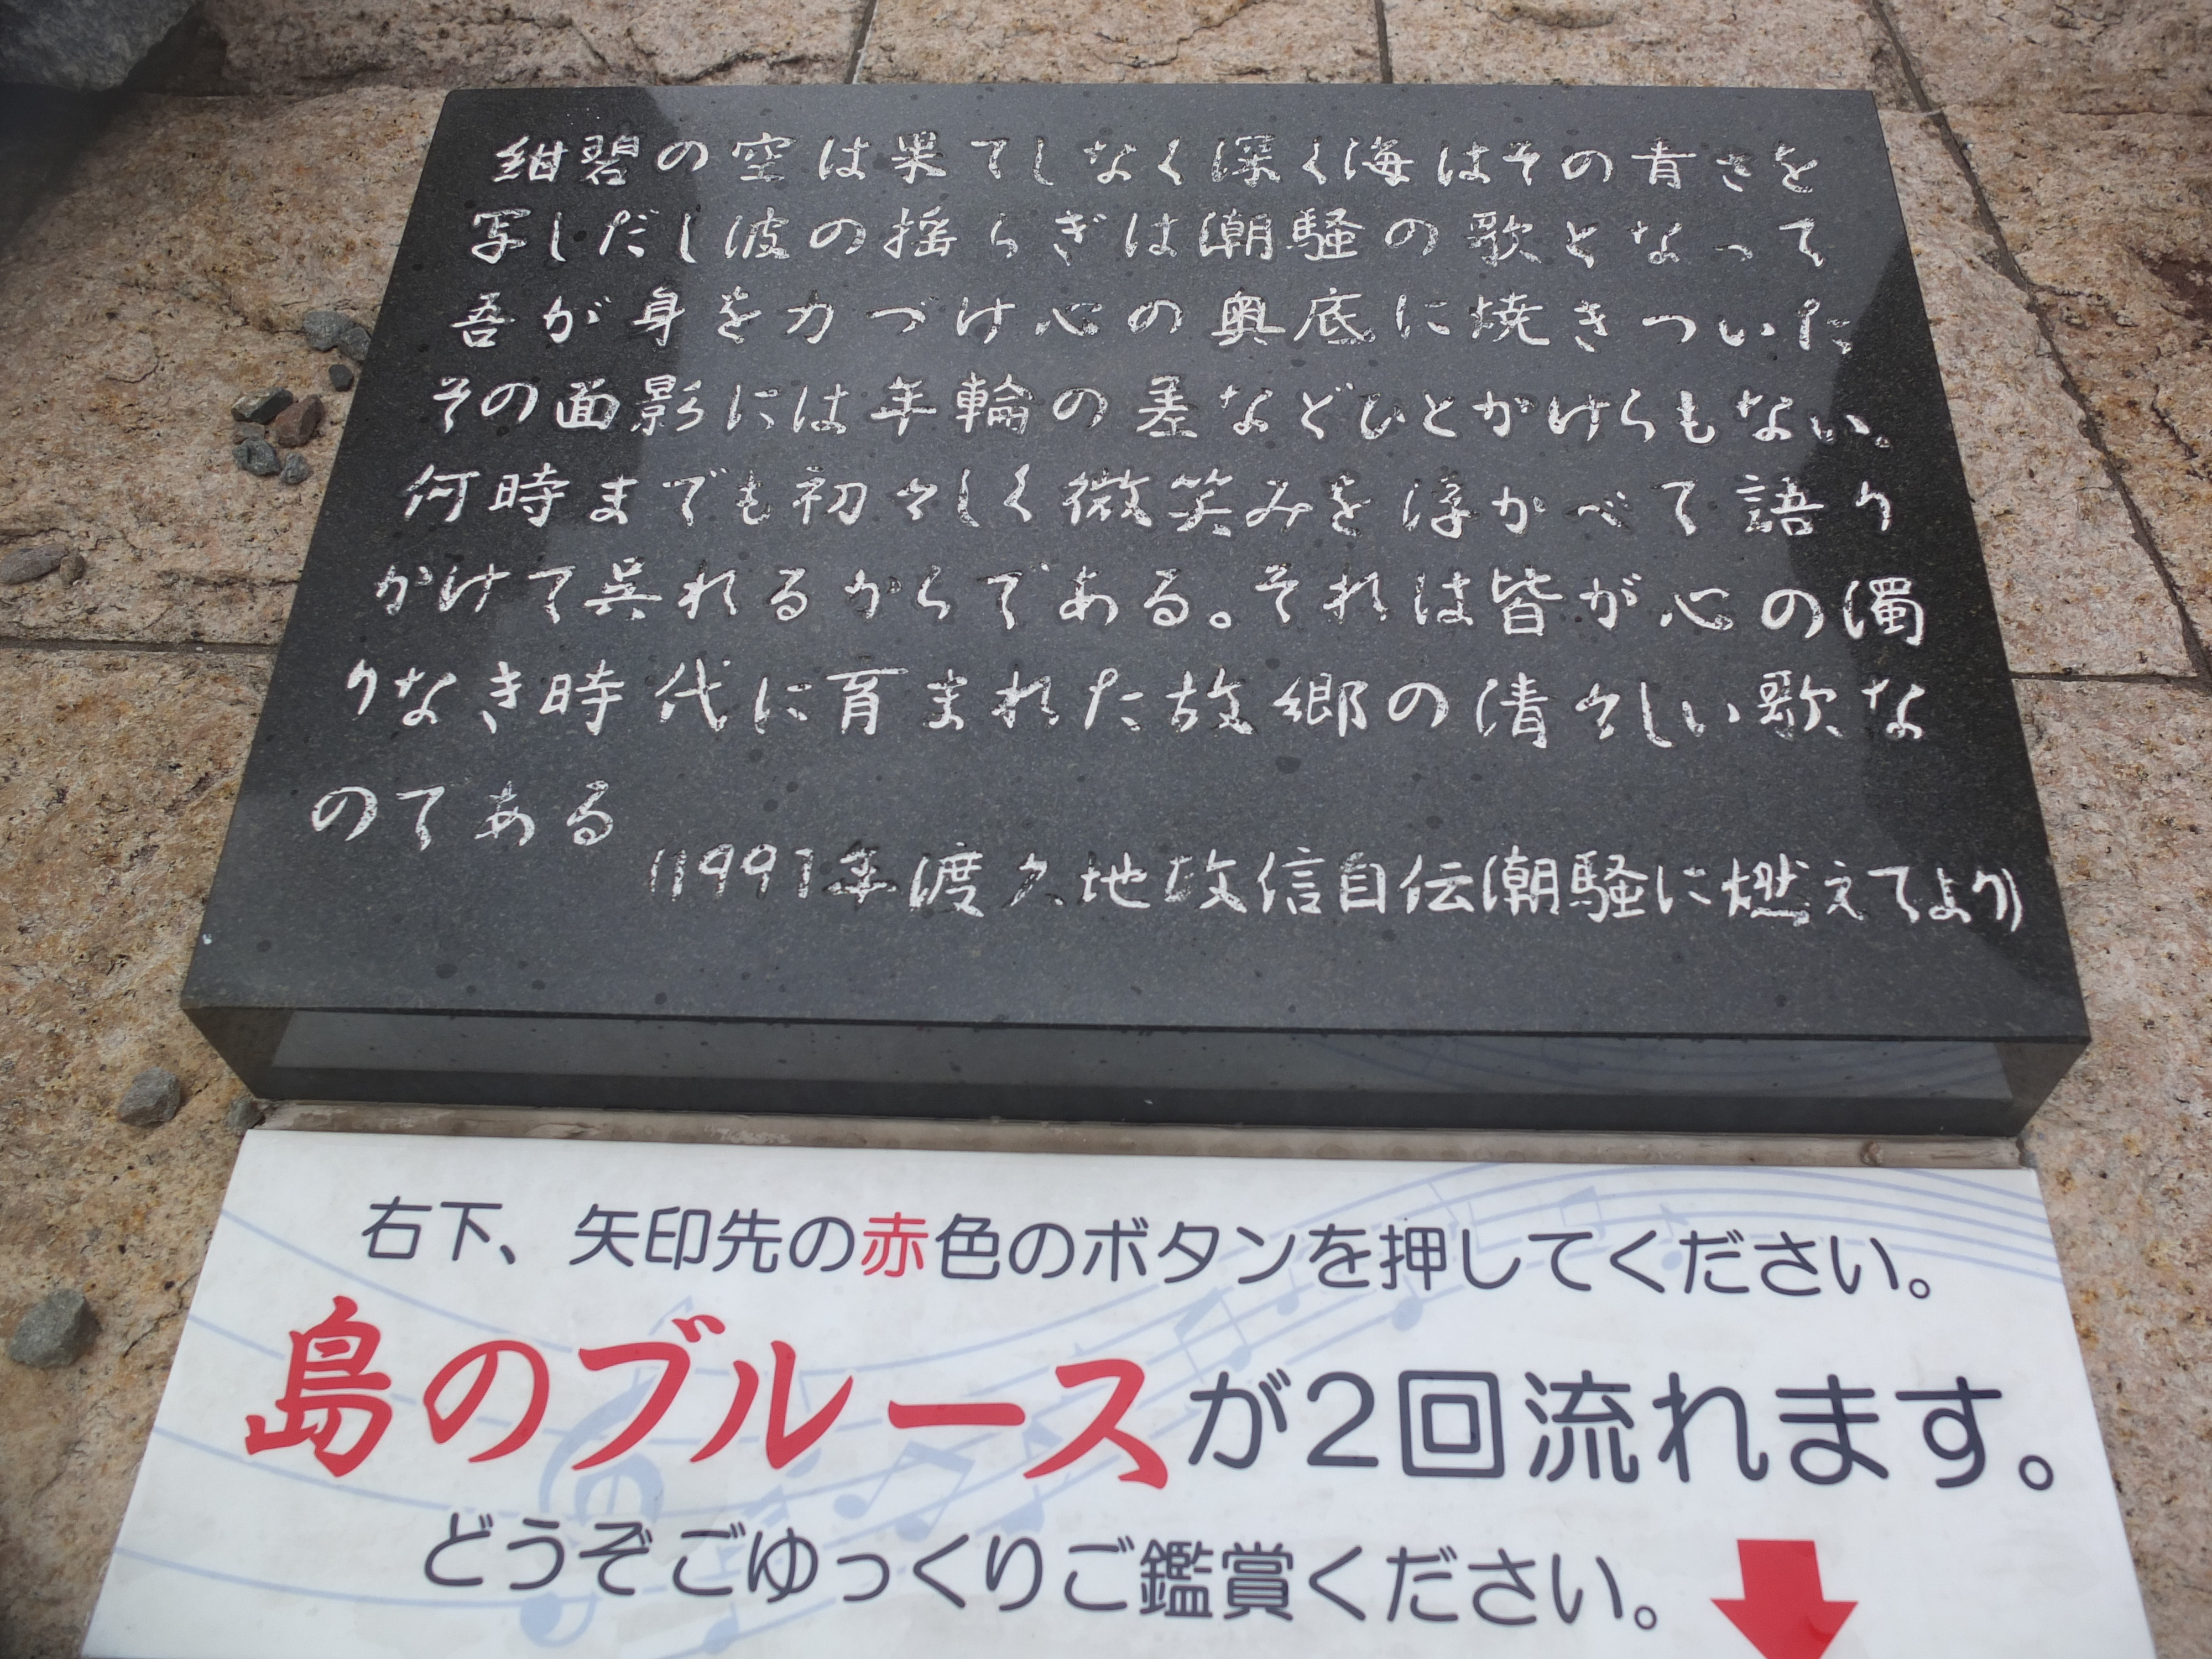 紺碧の空は果てしなく深く海はその青さを
写しだし波の揺らぎは潮騒の歌となって
吾が身を力づけ心の奥底に焼きついた
その面影には年輪の差などひとかけらもない。
何時までも初々しく微笑みを浮かべて語り
かけて呉れるからである。それは皆が心の濁
りなき時代に育まれた故郷の清々しい歌な
のである
(1991年渡久地政信自伝潮騒に燃えてより)
右下、矢印先の赤色のボタンを押してください。
島のブルースが2回流れます。
どうぞごゆっくりご鑑賞ください。